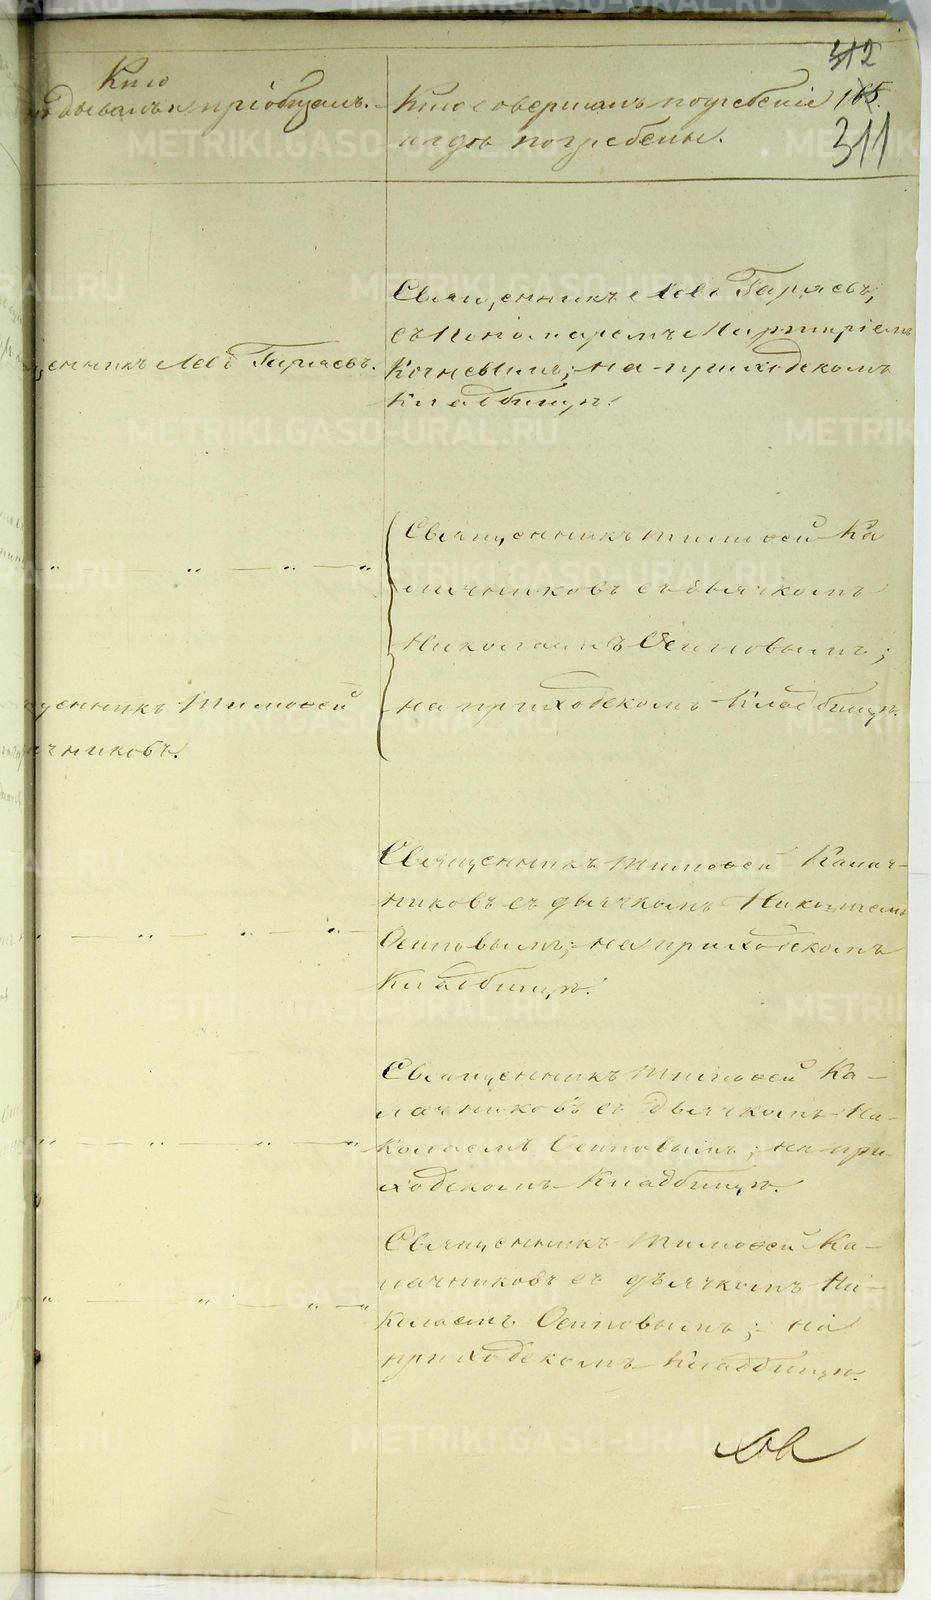 312
165.
311
Кто
дывалъ и пріобщалъ.
Кто совершалъ погребеніе
и гдѣ погребены.
Священникъ Левъ Гаряевъ,
съ Пономаремъ Мартиріемъ
Кочневымъ; на приходскомъ
Кладбищѣ.
щенникъ Левъ Гаряевъ.
Священникъ Тимоѳей Ка
лачниковъ съ дьячкомъ
Николаемъ Осиповымъ;
на приходскомъ Кладбищѣ.
щенникъ Тимоѳей
чниковъ.
Священникъ Тимоѳей Калач-
никовъ съ дьячкомъ Николаемъ
Осиповымъ; на приходскомъ
Кладбищѣ.
Священникъ Тимоѳей Ка-
лачниковъ съ дьячкомъ Ни-
колаемъ Осиповымъ; на при-
ходскомъ Кладбищѣ.
Священникъ Тимоѳей Ка-
лачниковъ съ дьячкомъ Ни-
колаемъ Осиповымъ; на
приходскомъ Кладбищѣ.
METRIKI.GASO-URAL.RU